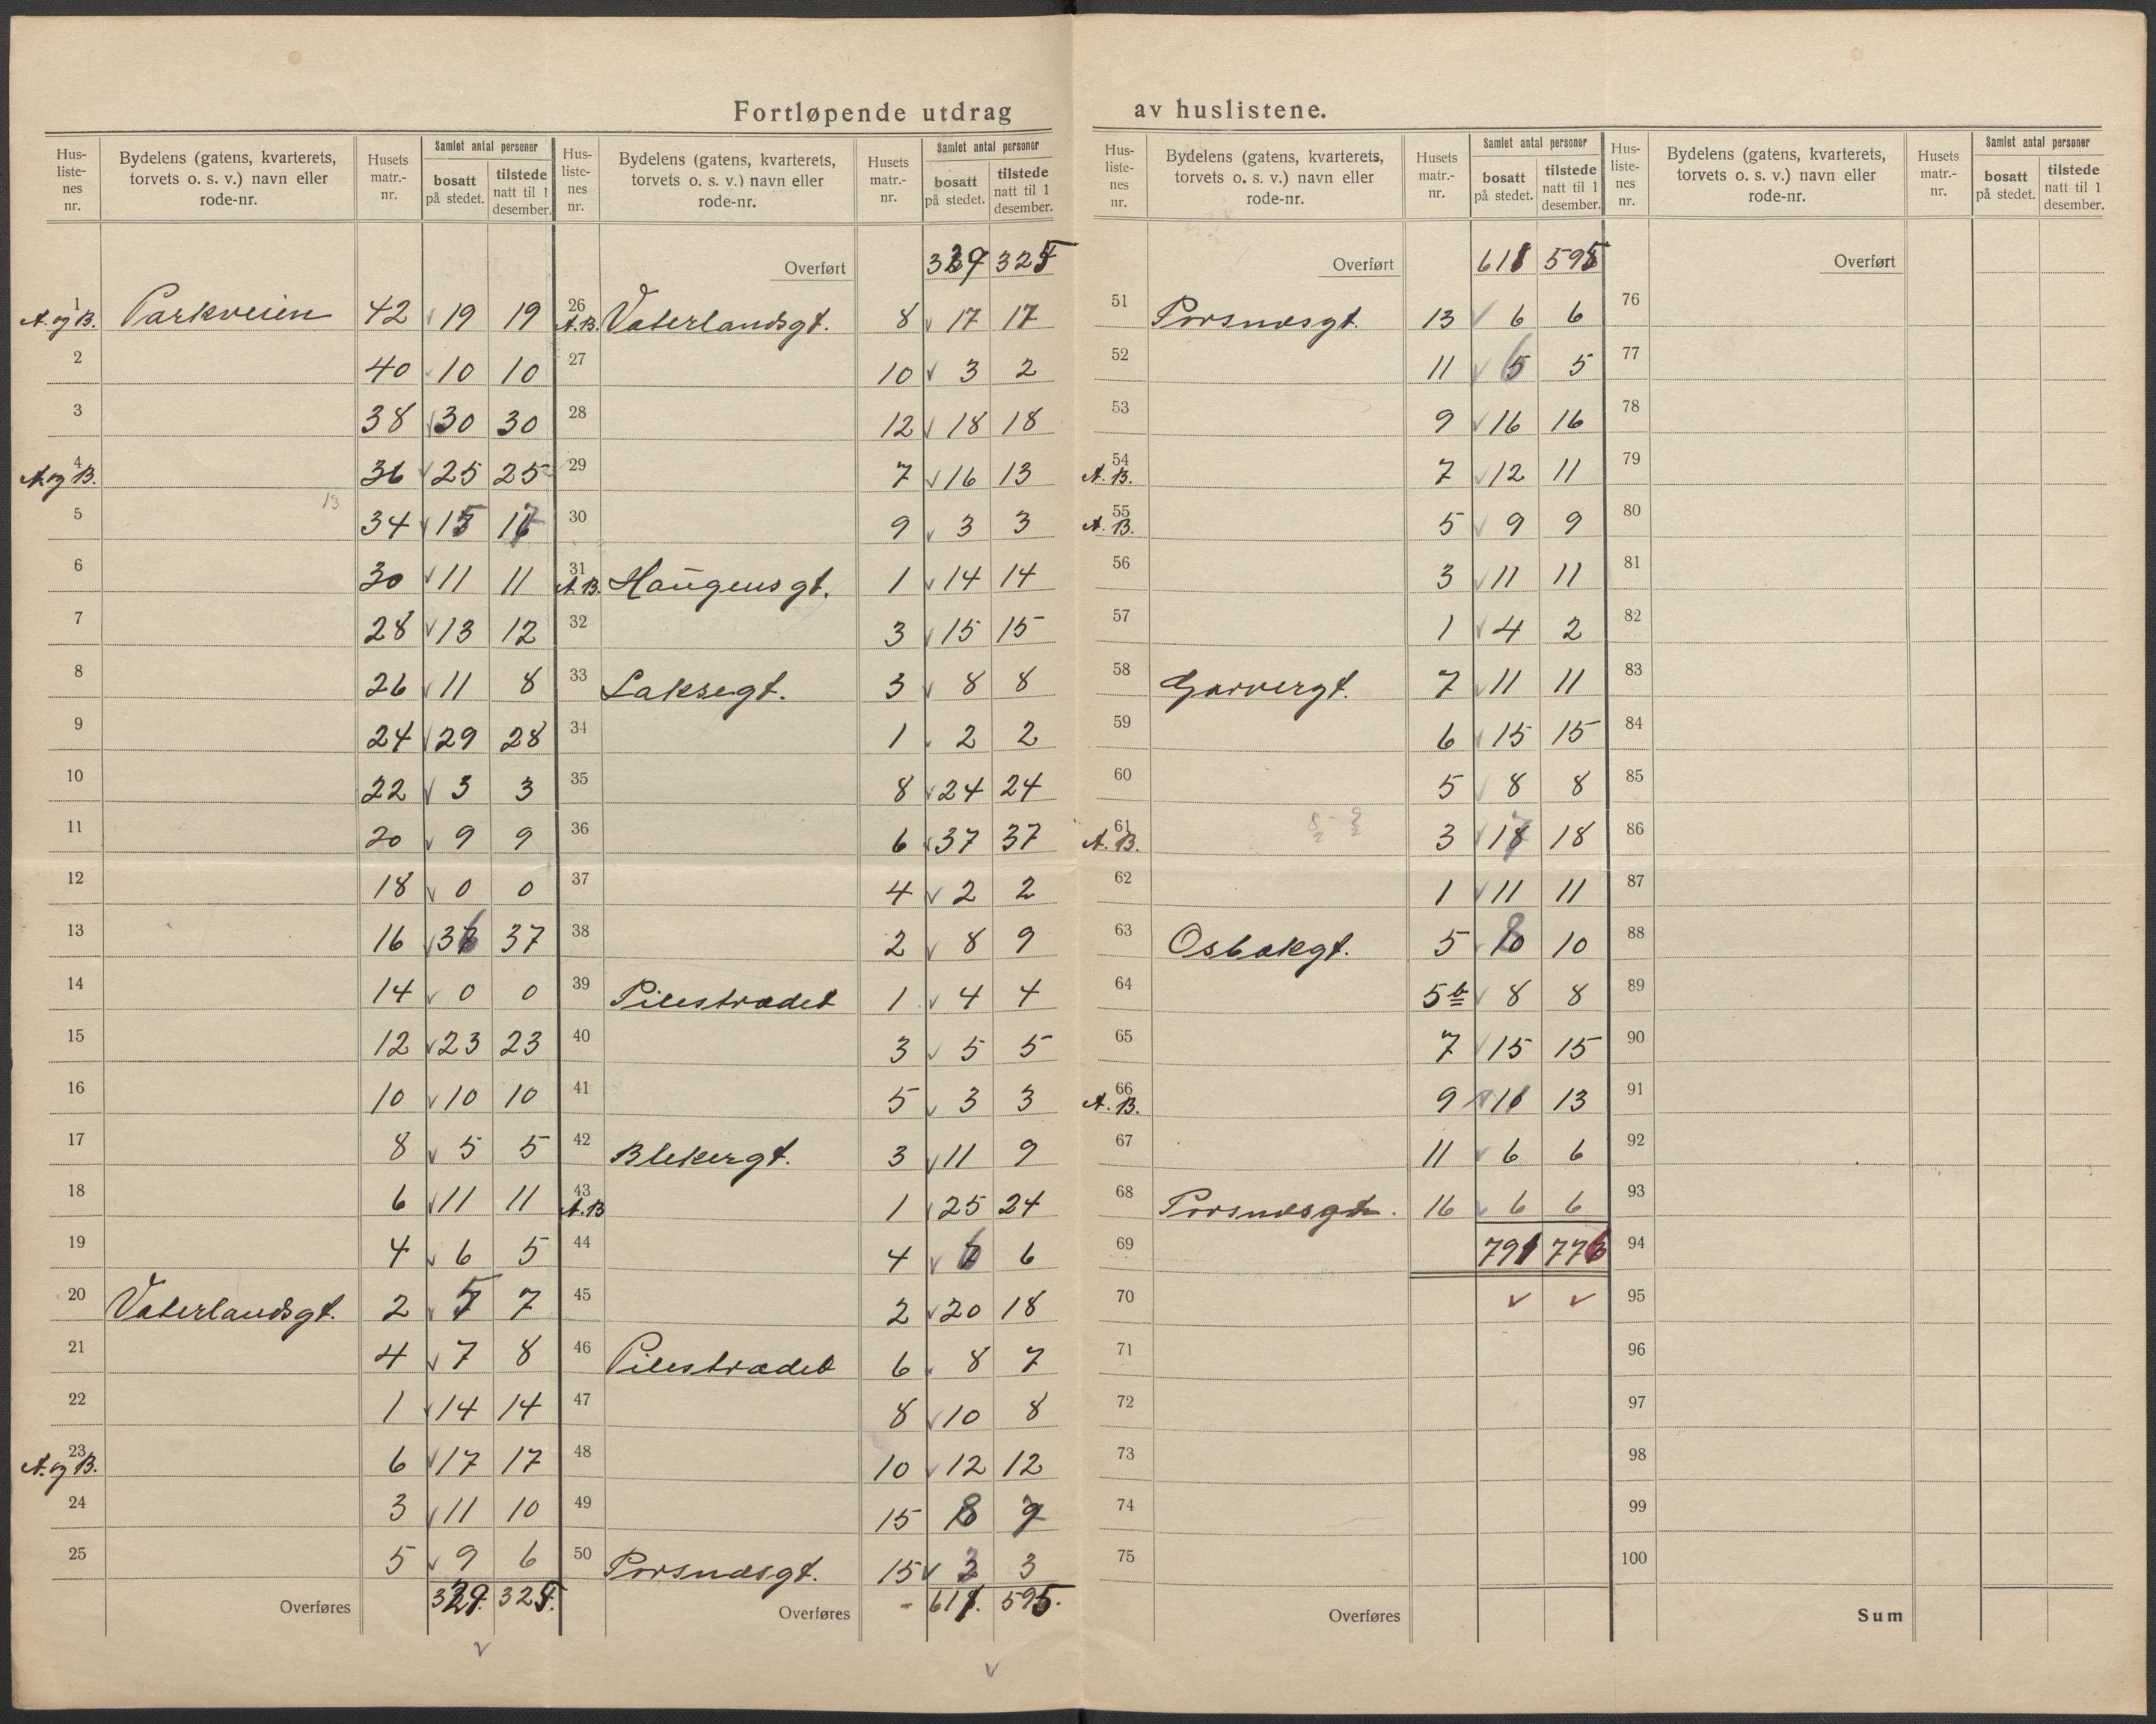 Fortløpende utdrag av huslistene.
Hus-listenes nr. | Bydelens (gatens, kvarterets, torvets o. s. v.) navn eller rode-nr. | Husets matr.-nr. | Samlet antal personer | bosatt på stedet. | tilstede natt til 1 desember.
1 A. og B. Parkveien 42 19 19
2 40 10 10
3 38 30 30
4 A. og B. 36 25 25
13
5 34 15 17
6 30 11 11
7 28 13 12
8 26 11 8
9 24 29 28
10 22 3 3
11 20 9 9
12 18 0 0
13 16 36 37
14 14 0 0
15 12 23 23
16 10 10 10
17 8 5 5
18 6 11 11
19 4 6 5
20 Vaterlandsgt. 2 5 7
21 4 7 8
22 1 14 14
23 A. og B. 6 17 17
24 3 11 10
25 5 9 6
Overføres 329. 325.
Hus-listenes nr. | Bydelens (gatens, kvarterets, torvets o. s. v.) navn eller rode-nr. | Husets matr.-nr. | Samlet antal personer | bosatt på stedet. | tilstede natt til 1 desember.
Overført 329 325
26 A.B. Vaterlandsgt. 8 17 17
27 10 3 2
28 12 18 18
29 7 16 13
30 9 3 3
31 A.B. Haugensgt. 1 14 14
32 3 15 15
33 Laksegt. 3 8 8
34 1 2 2
35 8 24 24
36 6 37 37
37 4 2 2
38 2 8 9
39 Pilestrædet 1 4 4
40 3 5 5
41 5 3 3
42 Blekergt. 3 11 9
43 A.B 1 25 24
44 4 6 6
45 2 20 18
46 Pilestrædet 6 8 7
47 8 10 8
48 10 12 12
49 15 8
50 Porsnæsgt. 15 3
Overføres 611. 595.
Hus-listenes nr. | Bydelens (gatens, kvarterets, torvets o. s. v.) navn eller rode-nr. | Husets matr.-nr. | Samlet antal personer | bosatt på stedet. | tilstede natt til 1 desember.
Overført 611 595
51 Porsnæsgt. 13 6 6
52 11 5
53 9 16 16
54 A. B. 7 12 11
55 A. B. 5 9 9
56 3 11 11
57 1 4 2
58 Garvergt. 7 11 11
59 6 15 15
60 5 8 8
61 A. B. 3 17 18
62 1 11 11
63 Osbakgt. 5 8 10
64 5b 8 8
65 7 15 15
66 A. B. 9 11 13
67 11 6 6
68 Porsnæsgt. 16 6 6
69 791 776
70
71
72
73
74
75
Overføres
Hus-listenes nr. | Bydelens (gatens, kvarterets, torvets o. s. v.) navn eller rode-nr. | Husets matr.-nr. | Samlet antal personer | bosatt på stedet. | tilstede natt til 1 desember.
Overført
76
77
78
79
80
81
82
83
84
85
86
87
88
89
90
91
92
93
94
95
96
97
98
99
100
Sum